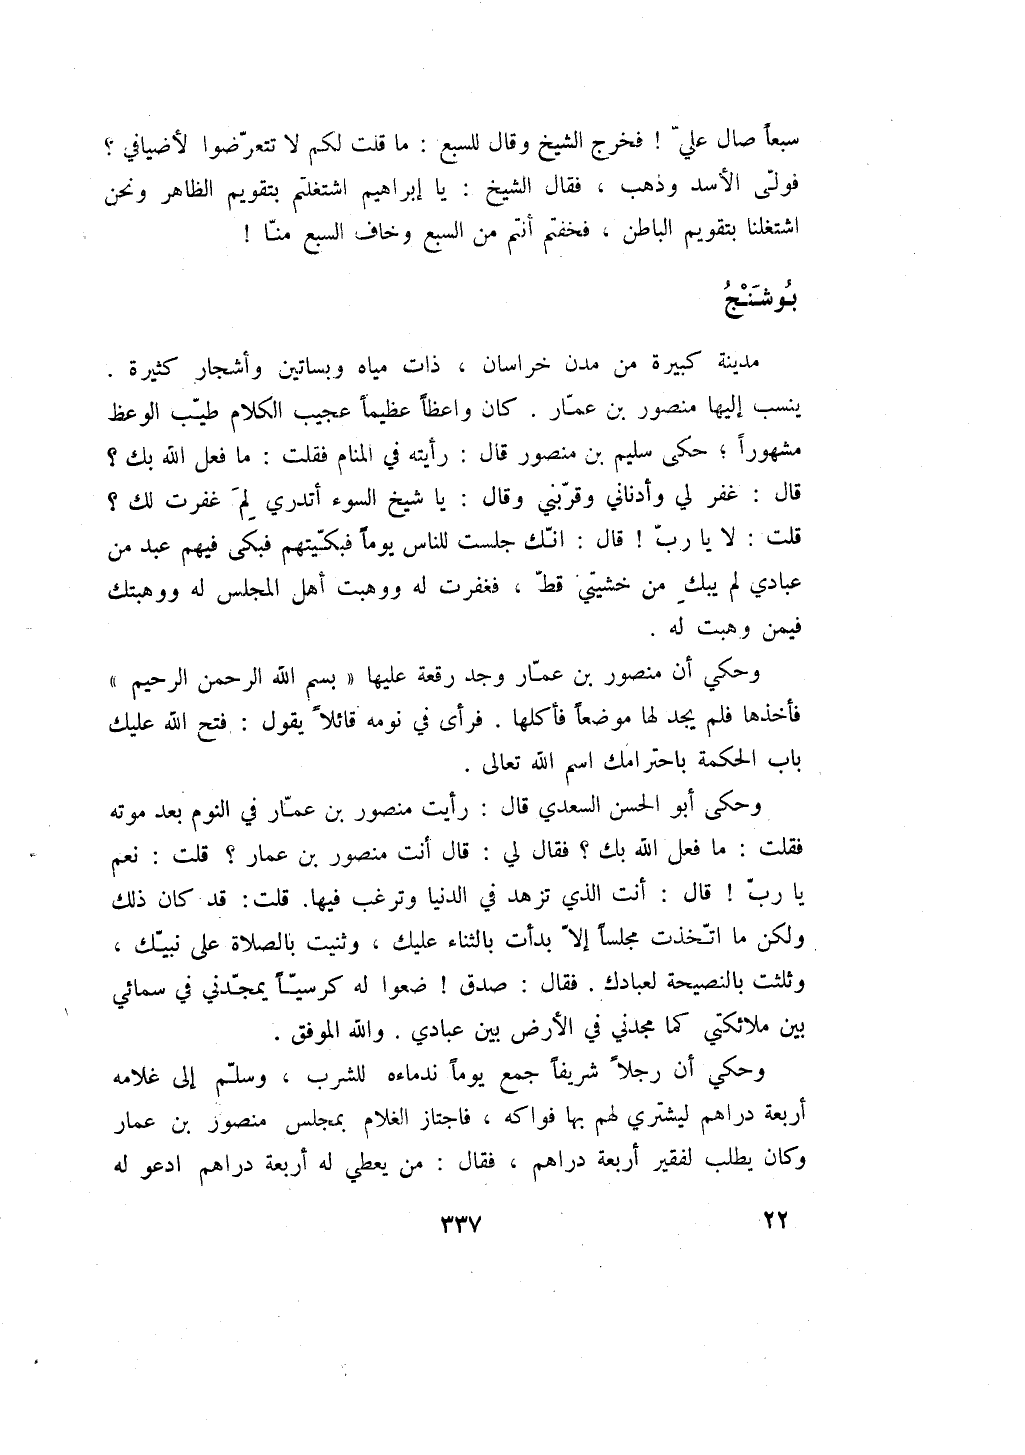 سبعاً صال عليّ ! فخرج الشيخ وقال للسبع : ما قلت لكم لا تتعرّضوا لأضيافي ؟
فولّى الأسد وذهب ، فقال الشيخ : يا إبراهيم اشتغلتم بتقويم الظاهر ونحن
اشتغلنا بتقويم الباطن ، فخفتم أنتم من السبع وخاف السبع منّا !
بُوشَنْجُ
مدينة كبيرة من مدن خراسان ، ذات مياه وبساتين وأشجار كثيرة .
ينسب إليها منصور بن عمّار . كان واعظاً عظيماً عجيب الكلام طيّب الوعظ
مشهوراً ؛ حكى سليم بن منصور قال : رأيته في المنام فقلت : ما فعل الله بك ؟
قال : غفر لي وأدناني وقرّبني وقال : يا شيخ السوء أتدري لِمَ غفرت لك ؟
قلت : لا يا ربّ ! قال : انّك جلست للناس يوماً فبكّيتهم فبكى فيهم عبد من
عبادي لم يبكِ من خشيتي قطّ ، فغفرت له ووهبت أهل المجلس له ووهبتك
فيمن وهبت له .
وحكي أن منصور بن عمّار وجد رقعة عليها « بسم الله الرحمن الرحيم »
فأخذها فلم يجد لها موضعاً فأكلها . فرأى في نومه قائلاً يقول : فتح الله عليك
باب الحكمة باحترامك اسم الله تعالى .
وحكى أبو الحسن السعدي قال : رأيت منصور بن عمّار في النوم بعد موته
فقلت : ما فعل الله بك ؟ فقال لي : قال أنت منصور بن عمار ؟ قلت : نعم
يا ربّ ! قال : أنت الذي تزهد في الدنيا وترغب فيها. قلت: قد كان ذلك
ولكن ما اتّخذت مجلساً إلاّ بدأت بالثناء عليك ، وثنيت بالصلاة على نبيّك ،
وثلثت بالنصيحة لعبادك . فقال : صدق ! ضعوا له كرسيّاً يمجّدني في سمائي
بين ملائكتي كما مجدني في الأرض بين عبادي . والله الموفق .
وحكي أن رجلاً شريفاً جمع يوماً ندماءه للشرب ، وسلّم إلى غلامه
أربعة دراهم ليشتري لهم بها فواكه ، فاجتاز الغلام بمجلس منصور بن عمار
وكان يطلب لفقير أربعة دراهم ، فقال : من يعطي له أربعة دراهم ادعو له
٢٢ ٣٣٧